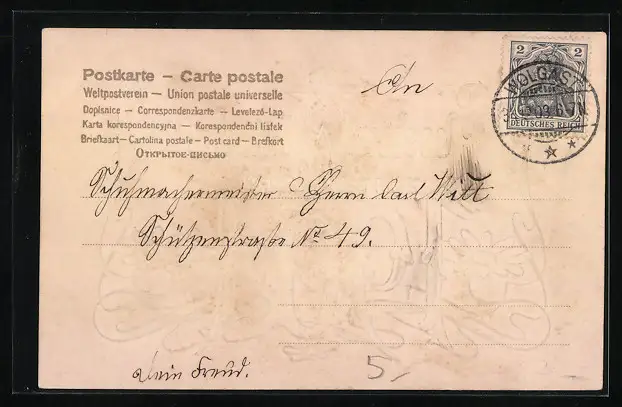 Postkarte – Carte postale
Weltpostverein – Union postale universelle
Dopisnice – Correspondenzkarte – Levelező-Lap
Karta korespondencyjna – Korespondenční lístek
Briefkaart – Cartolina postale – Post card – Brefkort
Открытое-письмо
An
Schuhmachermeister Herrn Carl Witt
Schützenstraße No 49.
Dein Freund.
5-
2 2
WOLGAST
DEUTSCHES REICH